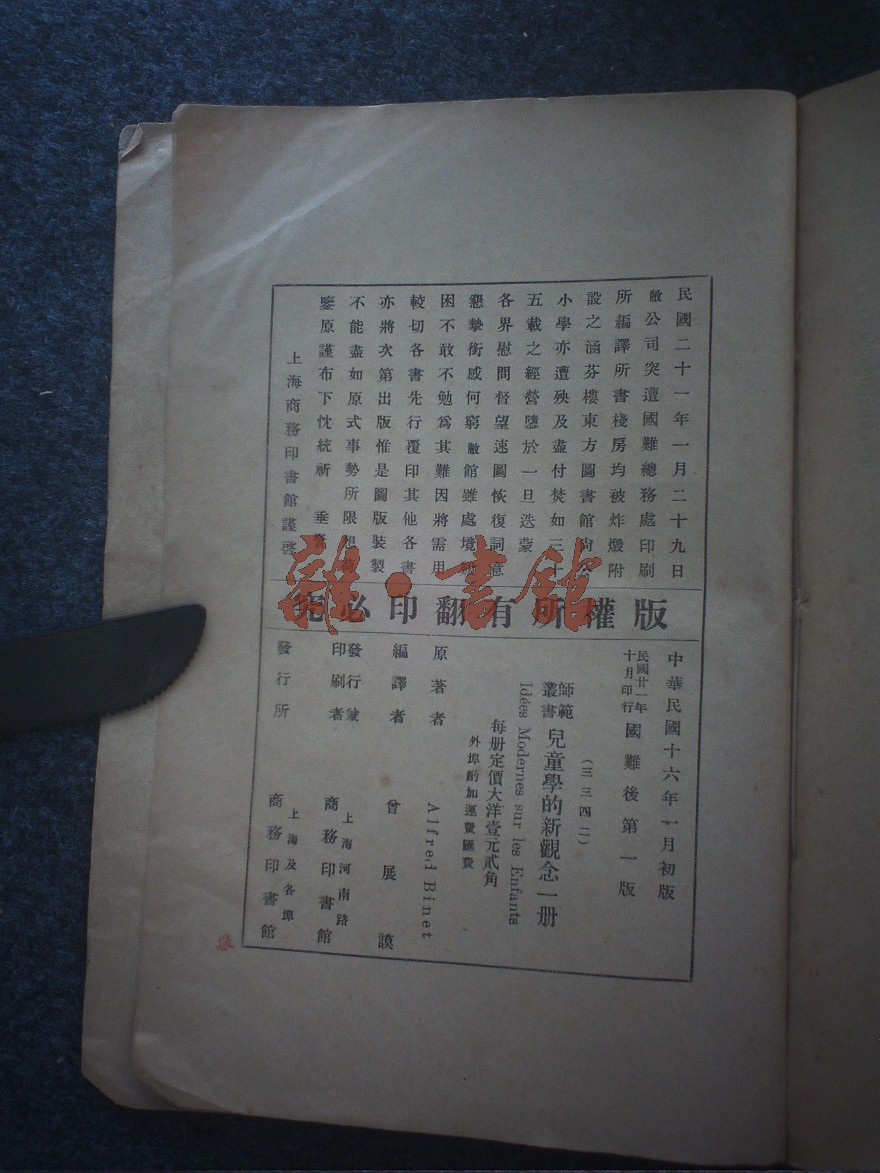 民國二十一年一月二十九日
敝公司突遭國難總務處印刷
所編譯所書棧房均被炸燬附
設之涵芬樓東方圖書館尚公
小學亦遭殃及盡付焚如三十
五載之經營隳於一旦迭蒙
各界慰問督望速圖恢復詞意
懇摯銜感何窮敝館雖處境
困不敢不勉爲其難因將需用
較切各書先行覆印其他各書
亦將次第出版惟是圖版裝製
不能盡如原式事勢所限想
鑒原謹布下忱統祈 垂
上海商務印書館謹啓
版權所有翻印必究
中華民國十六年一月初版
民國廿一年十月印行 國難後第一版
(三三四二)
師範叢書 兒童學的新觀念一册
Idées Modernes sur les Enfants
每册定價大洋壹元貳角
外埠酌加運費匯費
原著者 Alfred Binet
編譯者 曾展謨
發行兼印刷者 上海河南路 商務印書館
發行所 上海及各埠 商務印書館
雜·書館